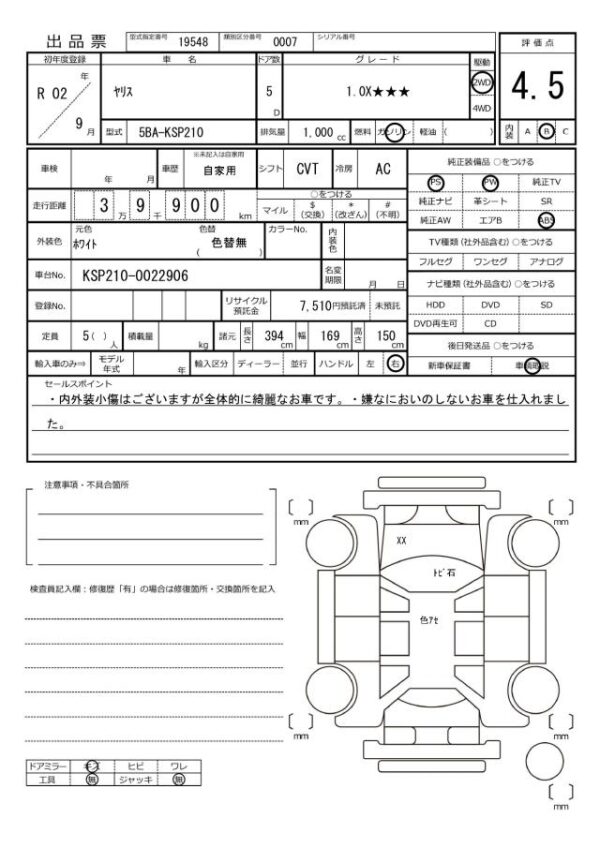 出品票 型式指定番号 19548 類別区分番号 0007 シリアル番号
評価点
4.5
初年度登録 車名 ドア数 グレード 駆動
R 02 年 9 月
ヤリス 5 D 1.0X★★★ 2WD 4WD
型式 5BA-KSP210 排気量 1,000 cc 燃料 ガソリン 軽油 ( ) 内装 A B C
車検 年 月 車歴 ※未記入は自家用 自家用 シフト CVT 冷房 AC
走行距離 3 万 9 千 9 0 0 km
○をつける
マイル $ (交換) * (改ざん) # (不明)
外装色 元色 ホワイト 色替 色替無 ( ) カラーNo. 内装色
車台No. KSP210-0022906 名変期限 月 日
登録No. リサイクル預託金 7,510円預託済 未預託
定員 5( ) 人 積載量 kg 諸元 長さ 394 cm 幅 169 cm 高さ 150 cm
輸入車のみ⇒ モデル年式 年 輸入区分 ディーラー 並行 ハンドル 左 右
純正装備品 ○をつける
PS PW 純正TV
純正ナビ 革シート SR
純正AW エアB ABS
TV種類 (社外品含む) ○をつける
フルセグ ワンセグ アナログ
ナビ種類 (社外品含む) ○をつける
HDD DVD SD
DVD再生可 CD
後日発送品 ○をつける
新車保証書
セールスポイント
・内外装小傷はございますが全体的に綺麗なお車です。・嫌なにおいのしないお車を仕入れまし
た。
注意事項・不具合箇所
検査員記入欄：修復歴「有」の場合は修復箇所・交換箇所を記入
mm
mm
XX
トビ石
色アセ
mm
mm
mm
ドアミラー キズ ヒビ ワレ
工具 無 ジャッキ 無